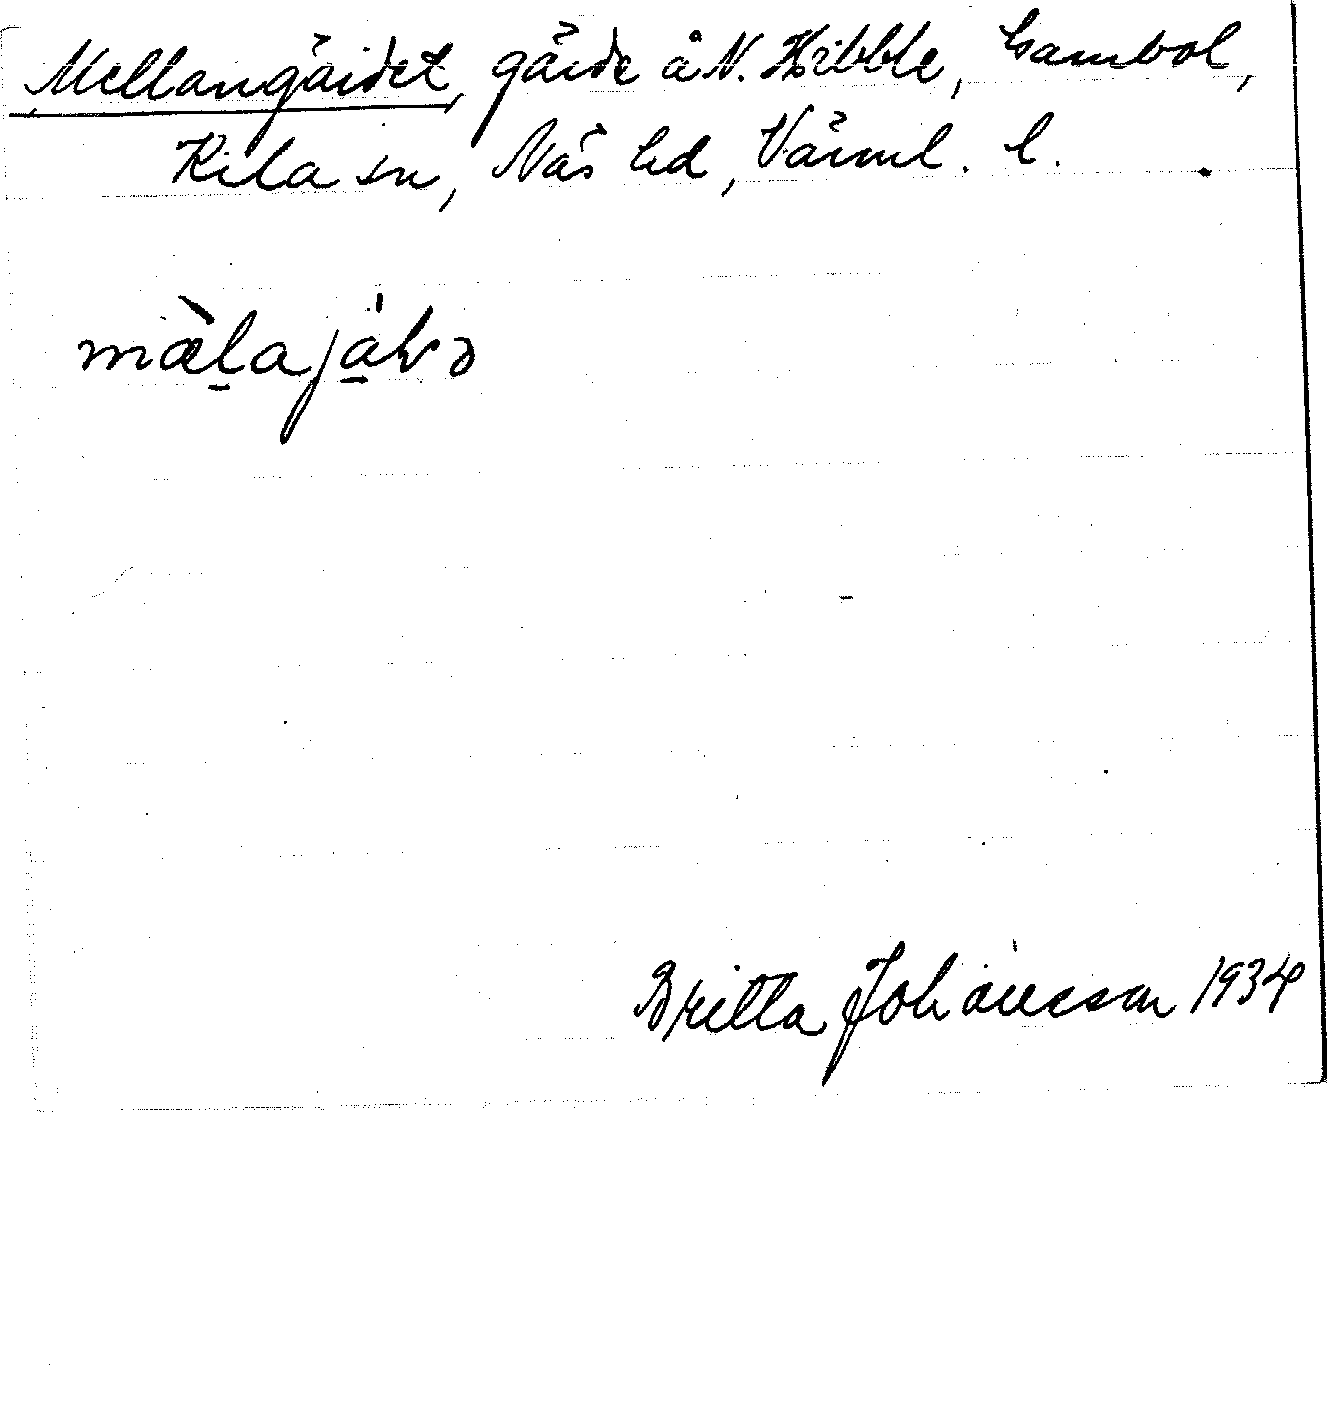 Mellangärdet, gärde å N. Kibble, Gambol,
Kila sn, Näs hd, Värml. l.
mæ̀lajäʹlvə
Britta Johansson 1934